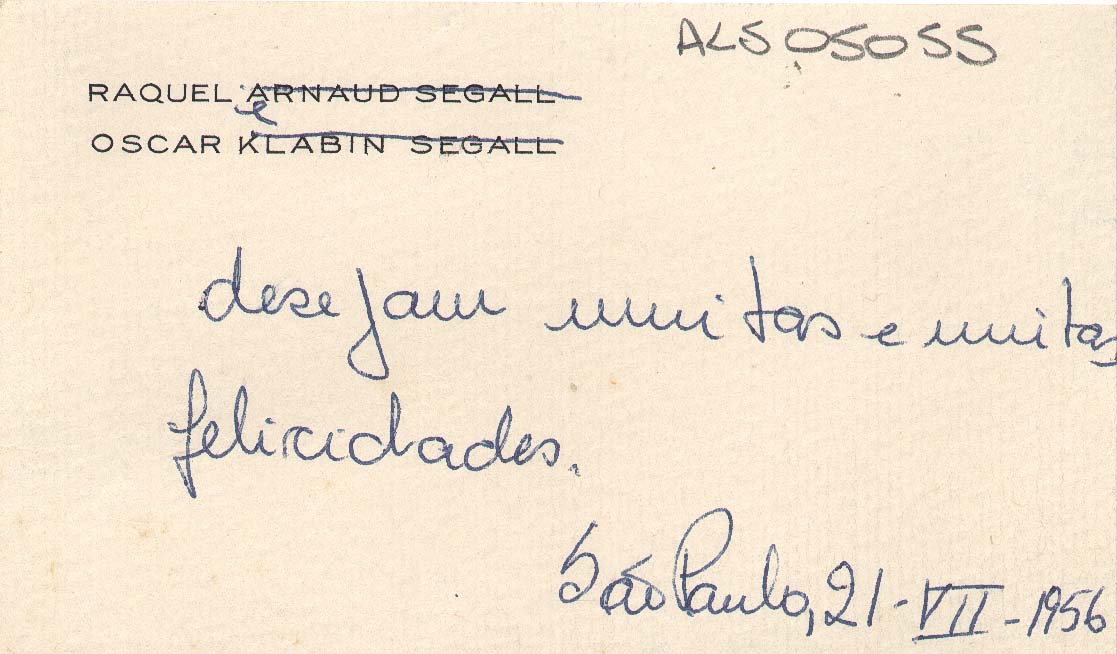 ALS 05055
RAQUEL ARNAUD SEGALL
e
OSCAR KLABIN SEGALL
desejam muitas e muitas
felicidades.
São Paulo, 21-VII-1956